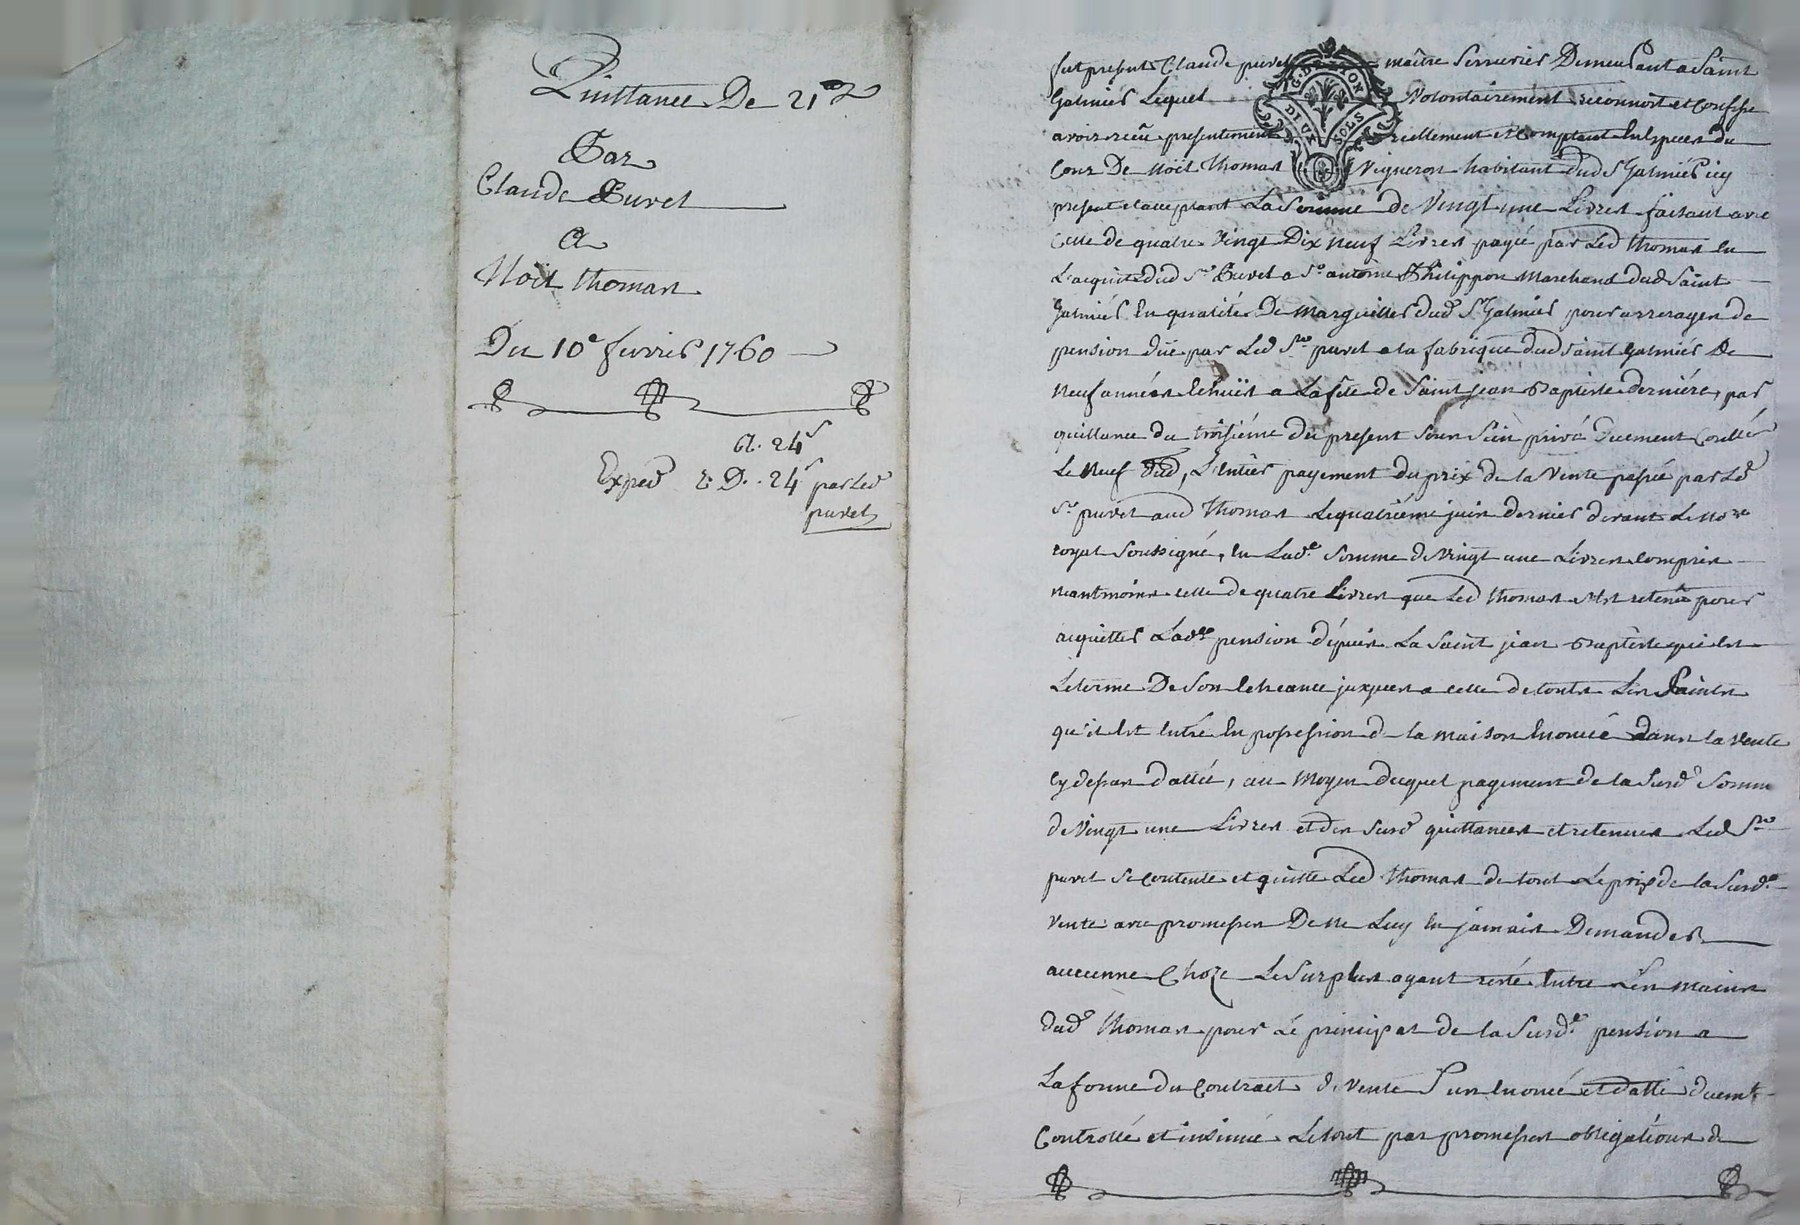 Quittance De 21ᵗᵗ
Par
Claude Puvel
A
Noël thomas
Du 10e fevrier 1760
Cl. 24s
Exped 24s par led
puvel
fut present Claude puvel maitre Serrurier Demeurant a Saint
Galmier Lequel Volontairement reconnoit et Confesse
avoir reçu presentement reellement et Comptant En Especes du
Cour De Noël thomas Vigneron habitant dud St Galmier icy
present et acceptant La Somme de Vingt une Livres faisant avec
Celle de quatre Vingt Dix neuf Livres payée par Led thomas En
L'acquit dud Sr Puvel a Sr antoine Philippon Marchand dud Saint
Galmier En qualité De Marguillier dud St Galmier pour arrerages de
pension düe par Led Sr puvel a la fabrique dud Saint Galmier De
Neuf années Echües a La fete de Saint jean Baptiste derniére, par
quittance du troisiéme du present Sous Sein privé duement Conllée
Le Neuf dud, L'Entier payement du prix de la Vente passée par Led
Sr puvel aud thomas Le quatriéme juin dernier devant Le nore
royal Soussigné, En Lade Somme de Vingt une Livres Compris
neantmoins celle de quatre Livres que Led thomas s'est retenu pour
acquitter Lade pension dépuis La Saint jean Baptiste qui Est
Le terme De Son Echeance jusques a celle de touts Les Saints
qu'il Est Entré En possession de la maison Enoncée dans la Vente
Cy dessus dattée, au Moyen duquel payement de la Susde Somme
de Vingt une Livres et des Susd quittances et retenues Led Sr
puvel Se Contente et quitte Led thomas de tout Le prix de la Susde
Vente avec promesses De ne Luy En jamais Demander
aucunne Choze Le Surplus ayant resté Entre Les mains
dud thomas pour Le principal de la Susde pension a
La forme du Contract de Vente Sus Enoncé et datté duemt
Controllé et insinué Le tout par promesses obligations de
G. DE LYON
DEUX SOLS